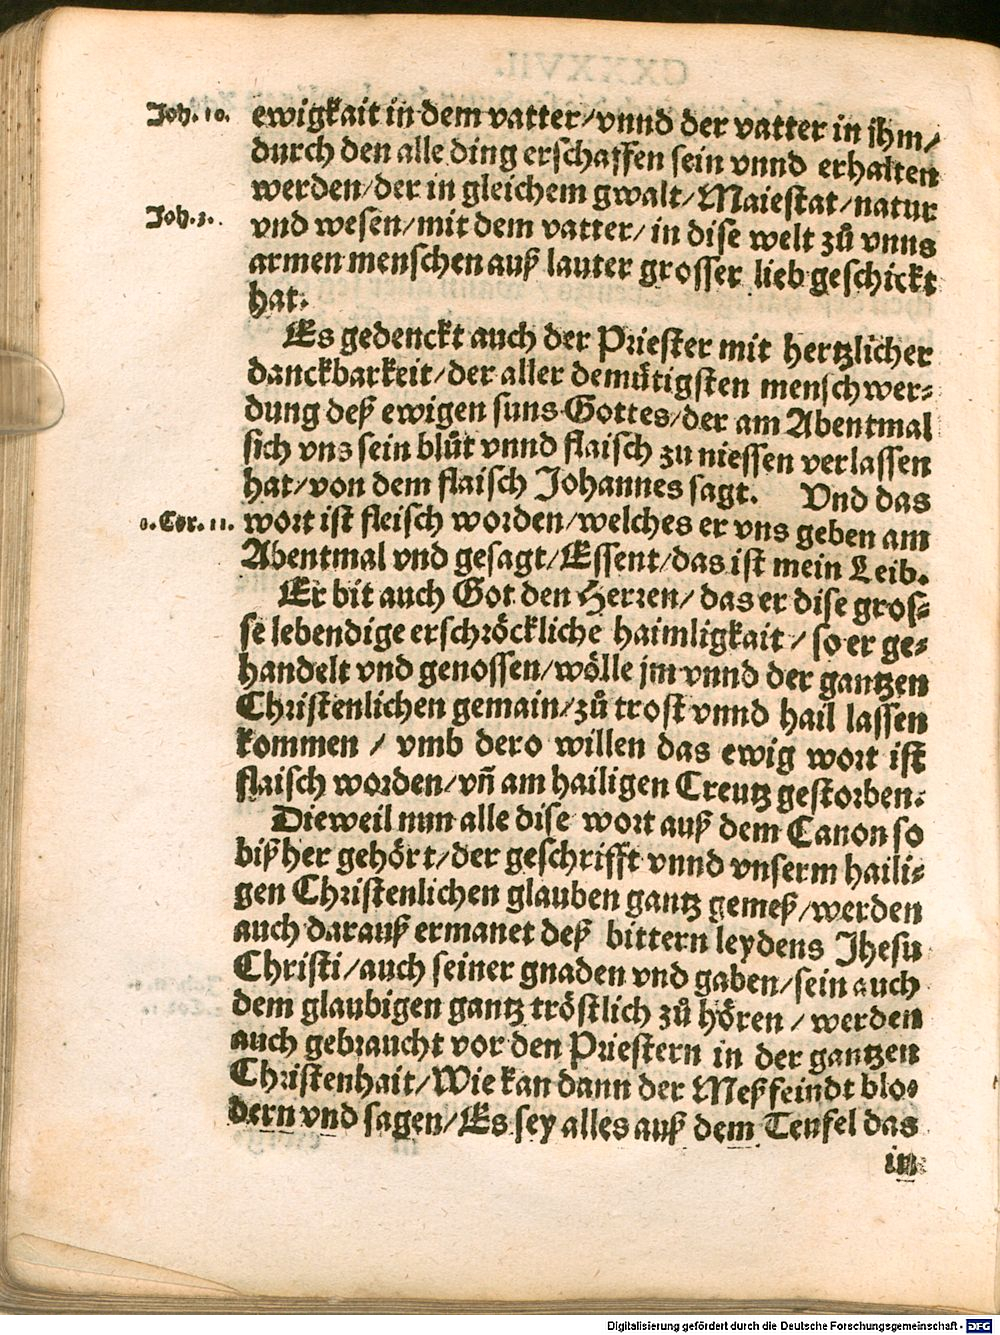 Joh. 10. ewigkait in dem vatter/vnnd der vatter in ihm/
durch den alle ding erschaffen sein vnnd erhalten
werden/der in gleichem gwalt/Maiestat/natur
Joh. 3. vnd wesen/mit dem vatter/in dise welt zů vnns
armen menschen auß lauter grosser lieb geschickt
hat.
Es gedenckt auch der Priester mit hertzlicher
danckbarkeit/der aller demütigsten menschwer⸗
dung deß ewigen suns Gottes/der am Abentmal
sich vns sein blůt vnnd flaisch zu niessen verlassen
hat/von dem flaisch Johannes sagt. Vnd das
1. Cor. 11. wort ist fleisch worden/welches er vns geben am
Abentmal vnd gesagt/Essent/das ist mein Leib.
Er bit auch Got den Herren/das er dise gros⸗
se lebendige erschröckliche haimligkait/so er ge⸗
handelt vnd genossen/wölle jm vnnd der gantzen
Christenlichen gemain/zů trost vnnd hail lassen
kommen / vmb dero willen das ewig wort ist
flaisch worden/vñ am hailigen Creutz gestorben.
Dieweil nun alle dise wort auß dem Canon so
bißher gehört/der geschrifft vnnd vnserm haili⸗
gen Christenlichen glauben gantz gemeß/werden
auch darauß ermanet deß bittern leydens Jhesu
Christi/auch seiner gnaden vnd gaben/sein auch
dem glaubigen gantz tröstlich zů hören/werden
auch gebraucht vor den Priestern in der gantzen
Christenhait/Wie kan dann der Meßfeindt blo⸗
dern vnd sagen/Es sey alles auß dem Teufel das
in
Digitalisierung gefördert durch die Deutsche Forschungsgemeinschaft - DFG